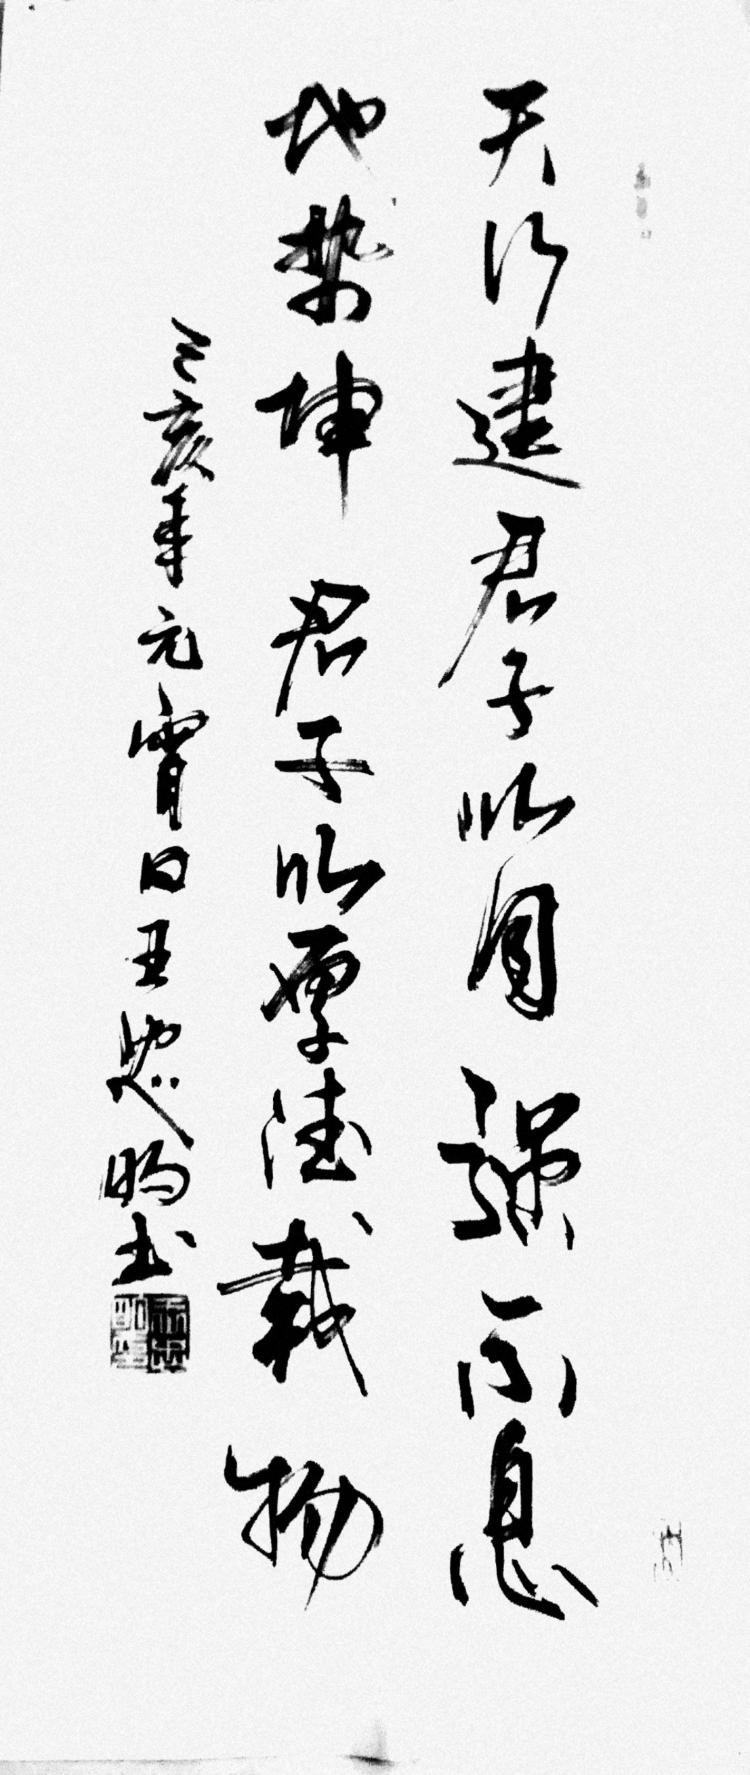 天行建君子以自强不息
地势坤君子以厚德載物
己亥年元宵日王忠明书